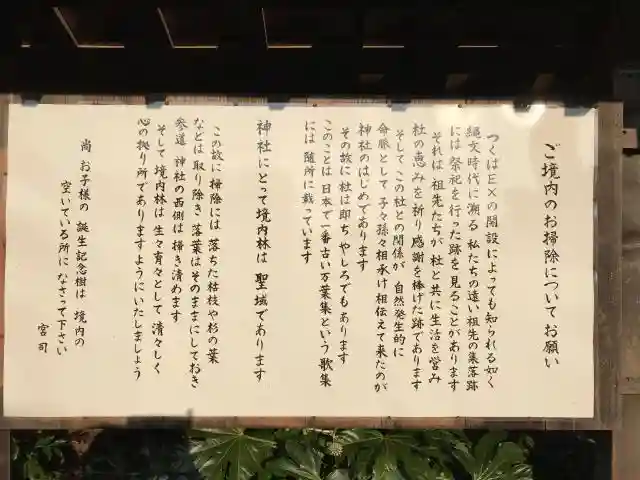 ご境内のお掃除についてお願い
つくはEXの開設によっても知られる如く
縄文時代に遡る 私たちの遠い祖先の集落跡
には 祭祀を行った跡を見ることがあります
それは 祖先たちが 杜と共に生活を営み
杜の恵みを祈り 感謝を捧げた跡であります
そして この杜との関係が 自然発生的に
命脈として 子々孫々相承け 相伝えて来たのが
神社のはじめであります
その故に 杜は即ち やしろでもあります
このことは 日本で一番古い 万葉集という歌集
には 随所に載っています
神社にとって境内林は 聖域であります
この故に 掃除には 落ちた枯枝や杉の葉
などは 取り除き 落葉はそのままにしておき
参道 神社の西側は 掃き清めます
そして 境内林は 生々育々として 清々しく
心の拠り所でありますようにいたしましょう
尚 お子様の 誕生記念樹は 境内の
空いている所に なさって下さい
宮司